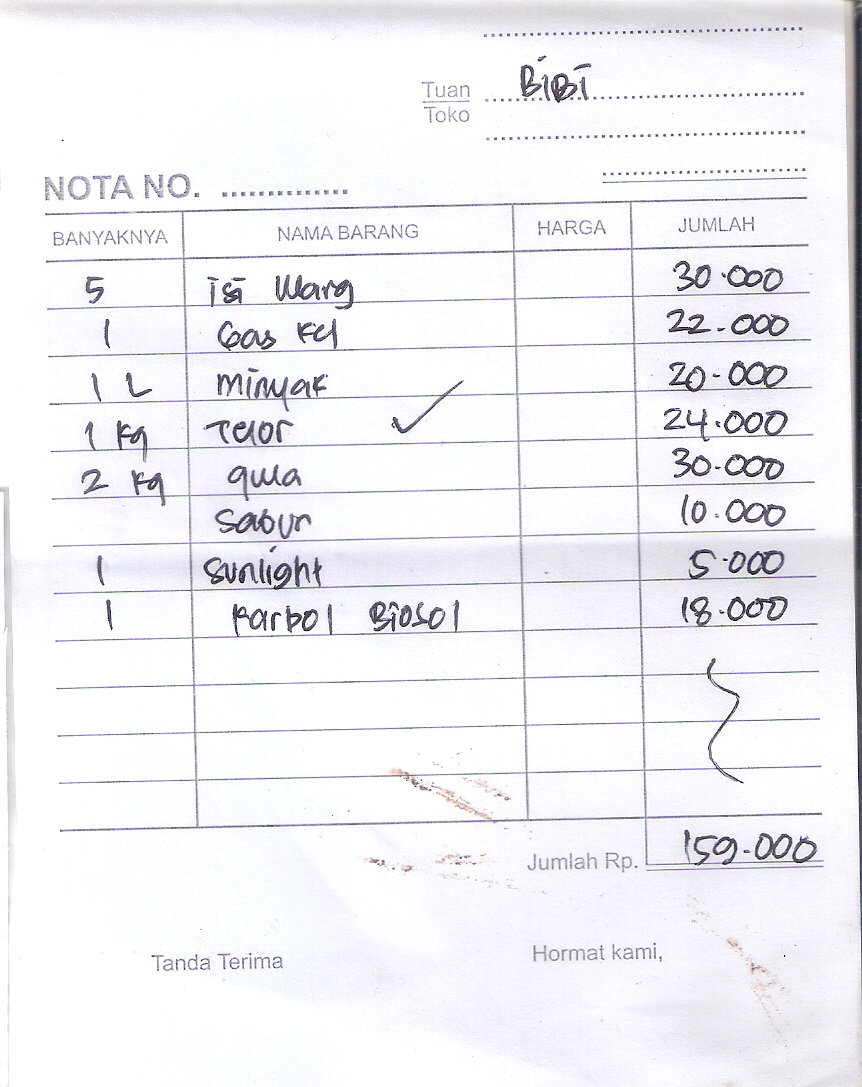 Tuan
Toko BiBi
NOTA NO.
BANYAKNYA NAMA BARANG HARGA JUMLAH
5 isi 30.000
1 Gas Kcl 22.000
1 L minyak 20.000
1 Kg Telor 24.000
2 Kg gula 30.000
Sabun 10.000
1 Sunlight 5.000
1 Karbol Biosol 18.000
Jumlah Rp. 159.000
Tanda Terima Hormat kami,